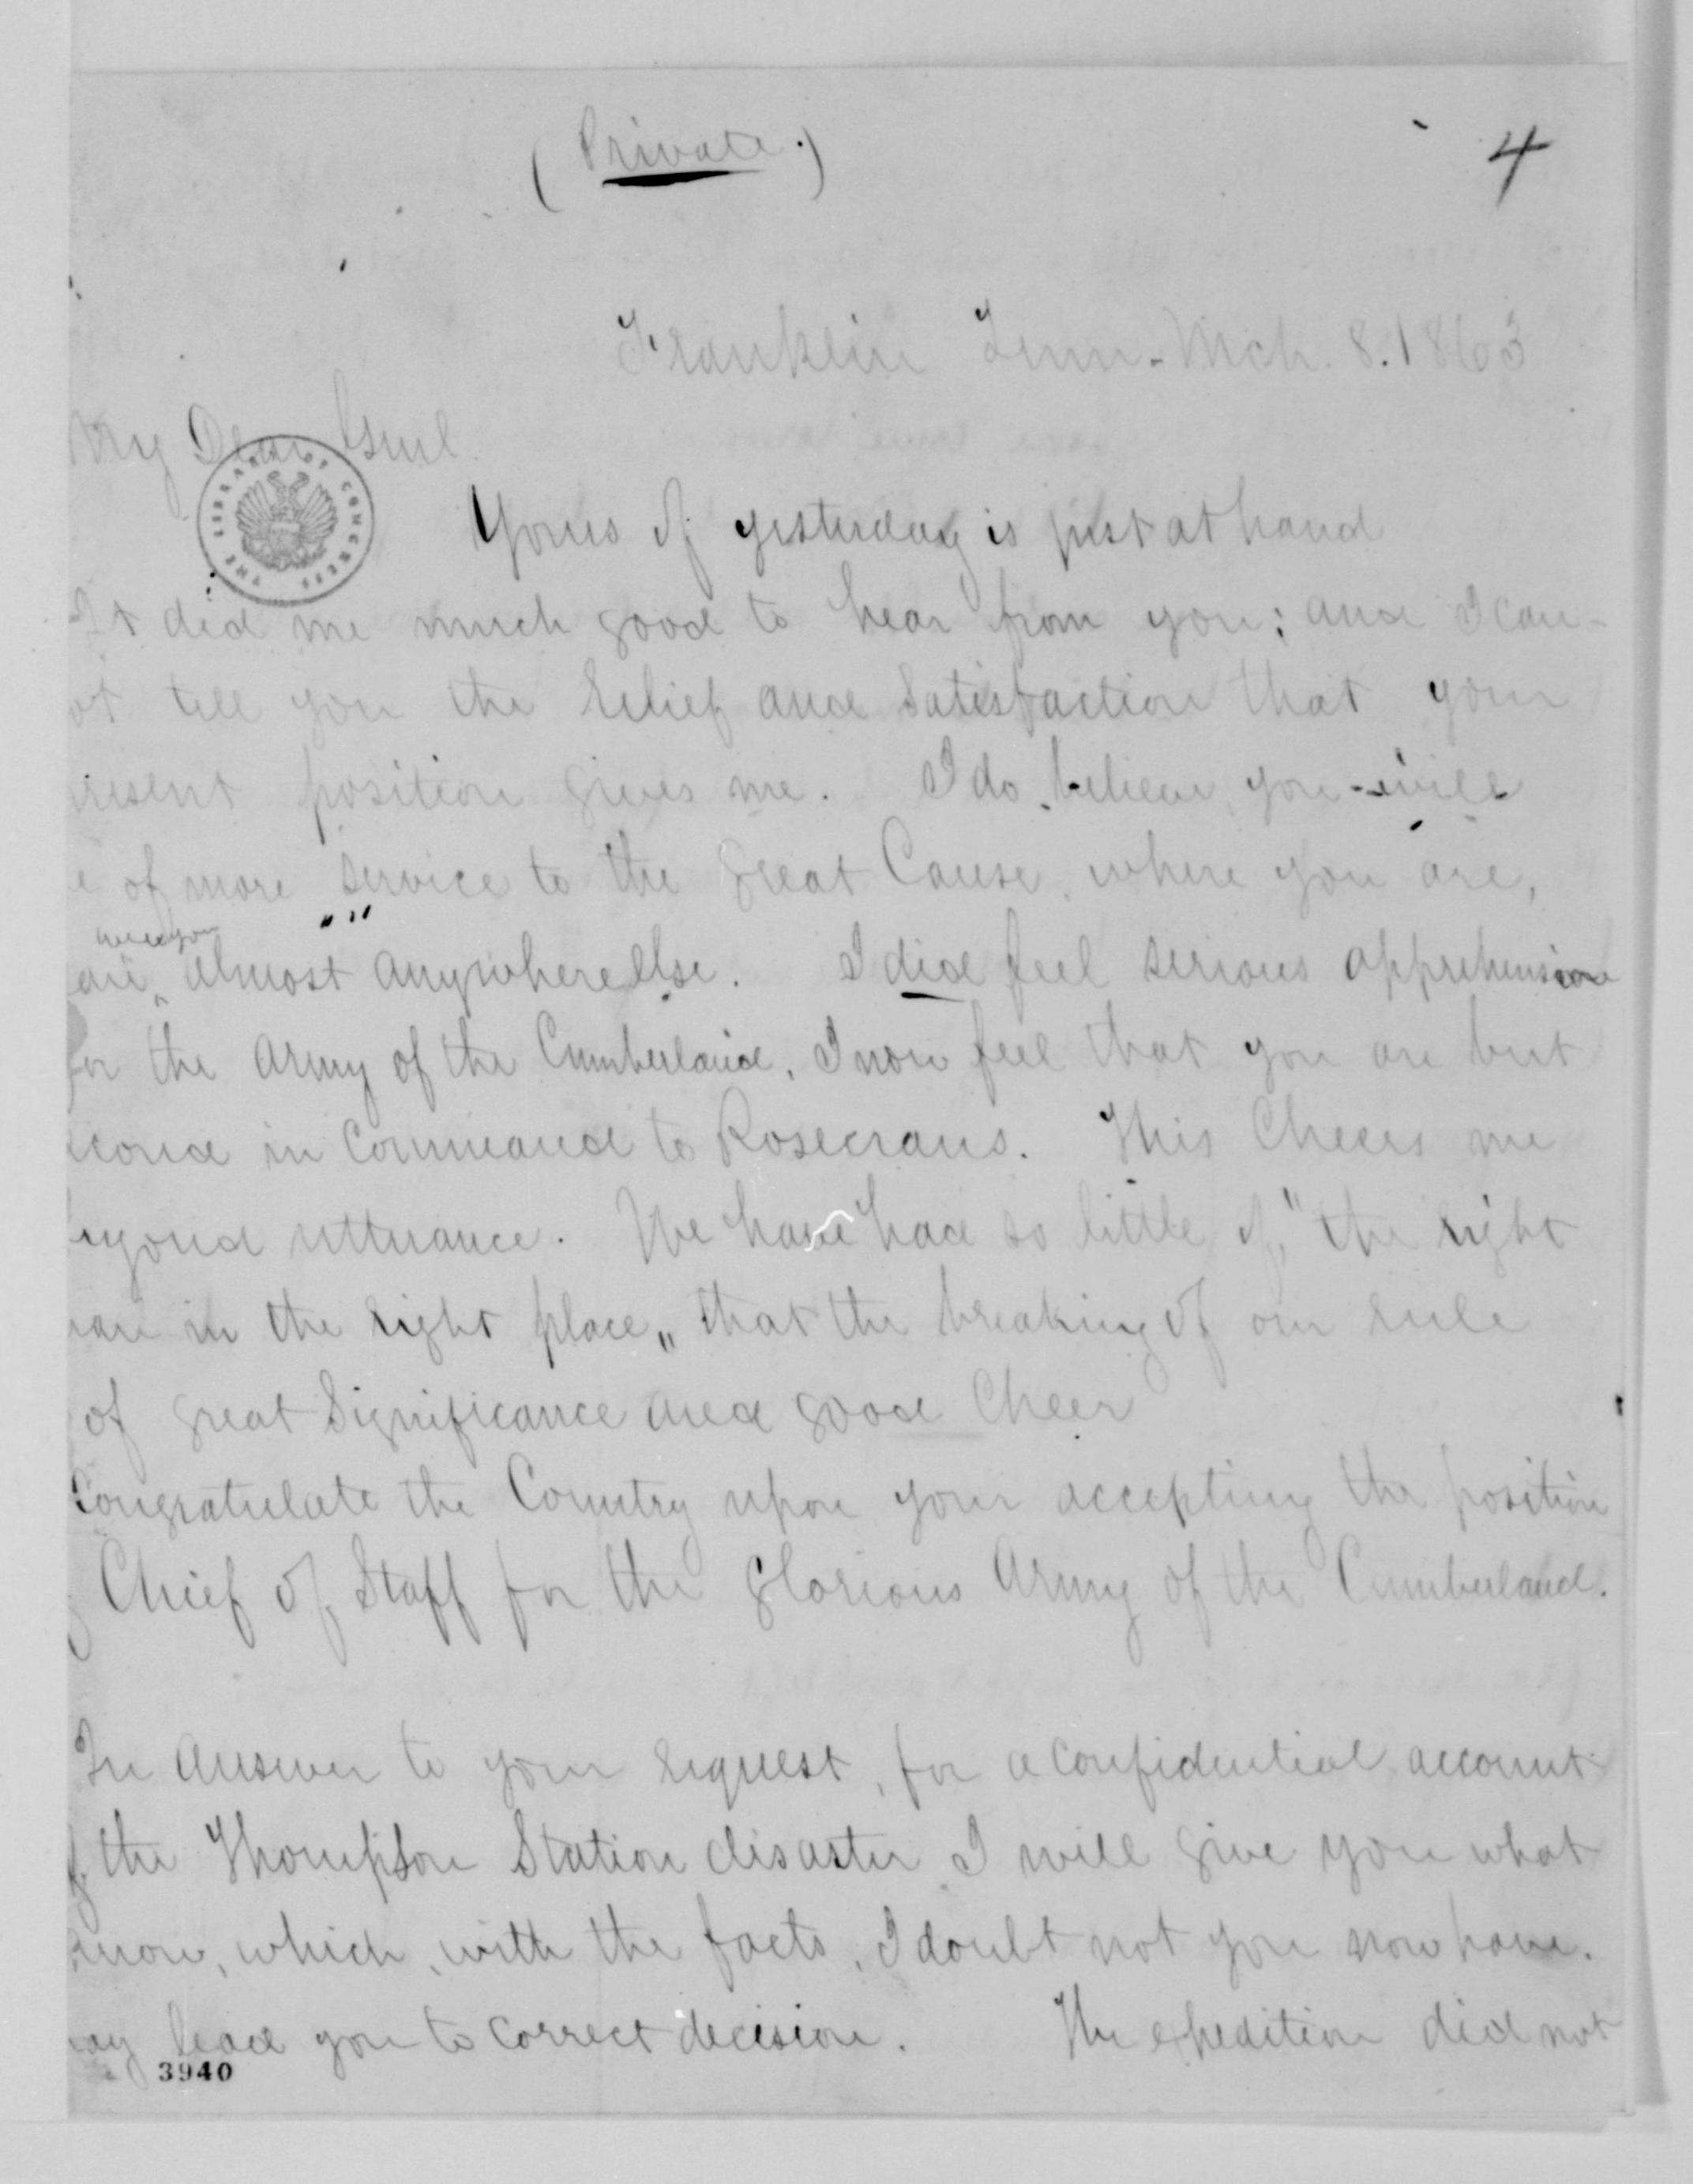 (Private.)
4
Franklin Tenn. Mch. 8. 1863
My Dear Genl.
THE LIBRARY OF CONGRESS
Yours of yesterday is just at hand
It did me much good to hear from you; and I can-
ot tell you the relief and satisfaction that your
resent position gives me. I do believe you will
e of more service to the great Cause, where you are,
almost anywhere else. I did feel serious apprehension
for the Army of the Cumberland. I now feel that you are but
econd in Command to Rosecrans. This Cheers me
eyond utterance. We have had so little of, "the right
an in the right place" that the breaking of our rule
of great Significance and good Cheer
Congratulate the Country upon your accepting the position
Chief of Staff for the glorious Army of the Cumberland.
In answer to your request, for a confidential account
f the Thompson Station disaster I will give you what
know, which, with the facts, I doubt not you now have.
ay lead you to correct decision. The expedition did not
3940